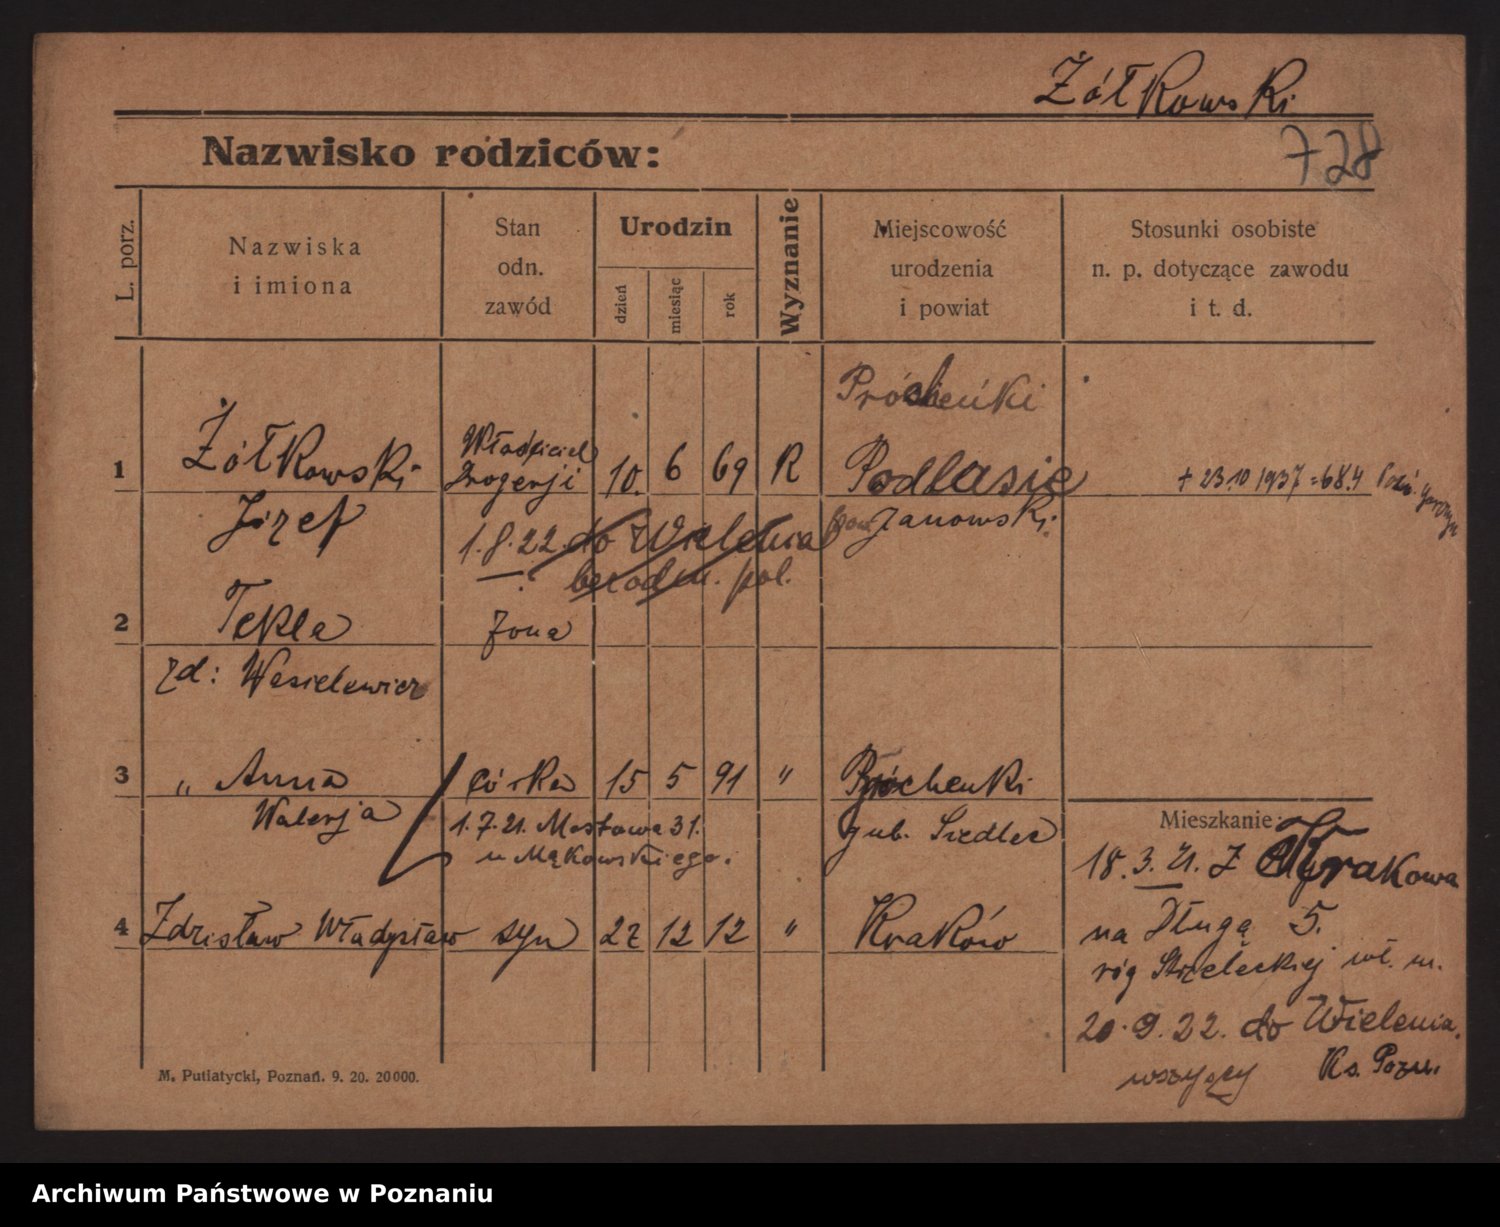 Żółkowski
728
Nazwisko rodziców:
L. porz.
Nazwiska
i imiona
Stan
odn.
zawód
Urodzin
dzień
miesiąc
rok
Wyznanie
Miejscowość
urodzenia
i powiat
Stosunki osobiste
n. p. dotyczące zawodu
i t. d.
Próchenki
1 Żółkowski Właściciel Drogerji 10. 6 69 R Podlasie + 23.10 1937
Józef 1.8.22. do Wielenia Janowski
bez odm. pol.
2 Tekla żona
zd: Wasielewicz
3 " Anna córka 15 5 91 " Próchenki
Walerja 1.7.21. Mostowa 31. gub. Siedlec
u Mąkowskiego.
Mieszkanie:
18.3.21. z Krakowa
4 Zdzisław Władysław syn 22 12 12 " Kraków
na Długą 5.
róg Strzeleckiej wł. m.
20.9.22. do Wielenia.
wszyscy Ks. Pozn.
M. Putiatycki, Poznań. 9. 20. 20000.
Archiwum Państwowe w Poznaniu